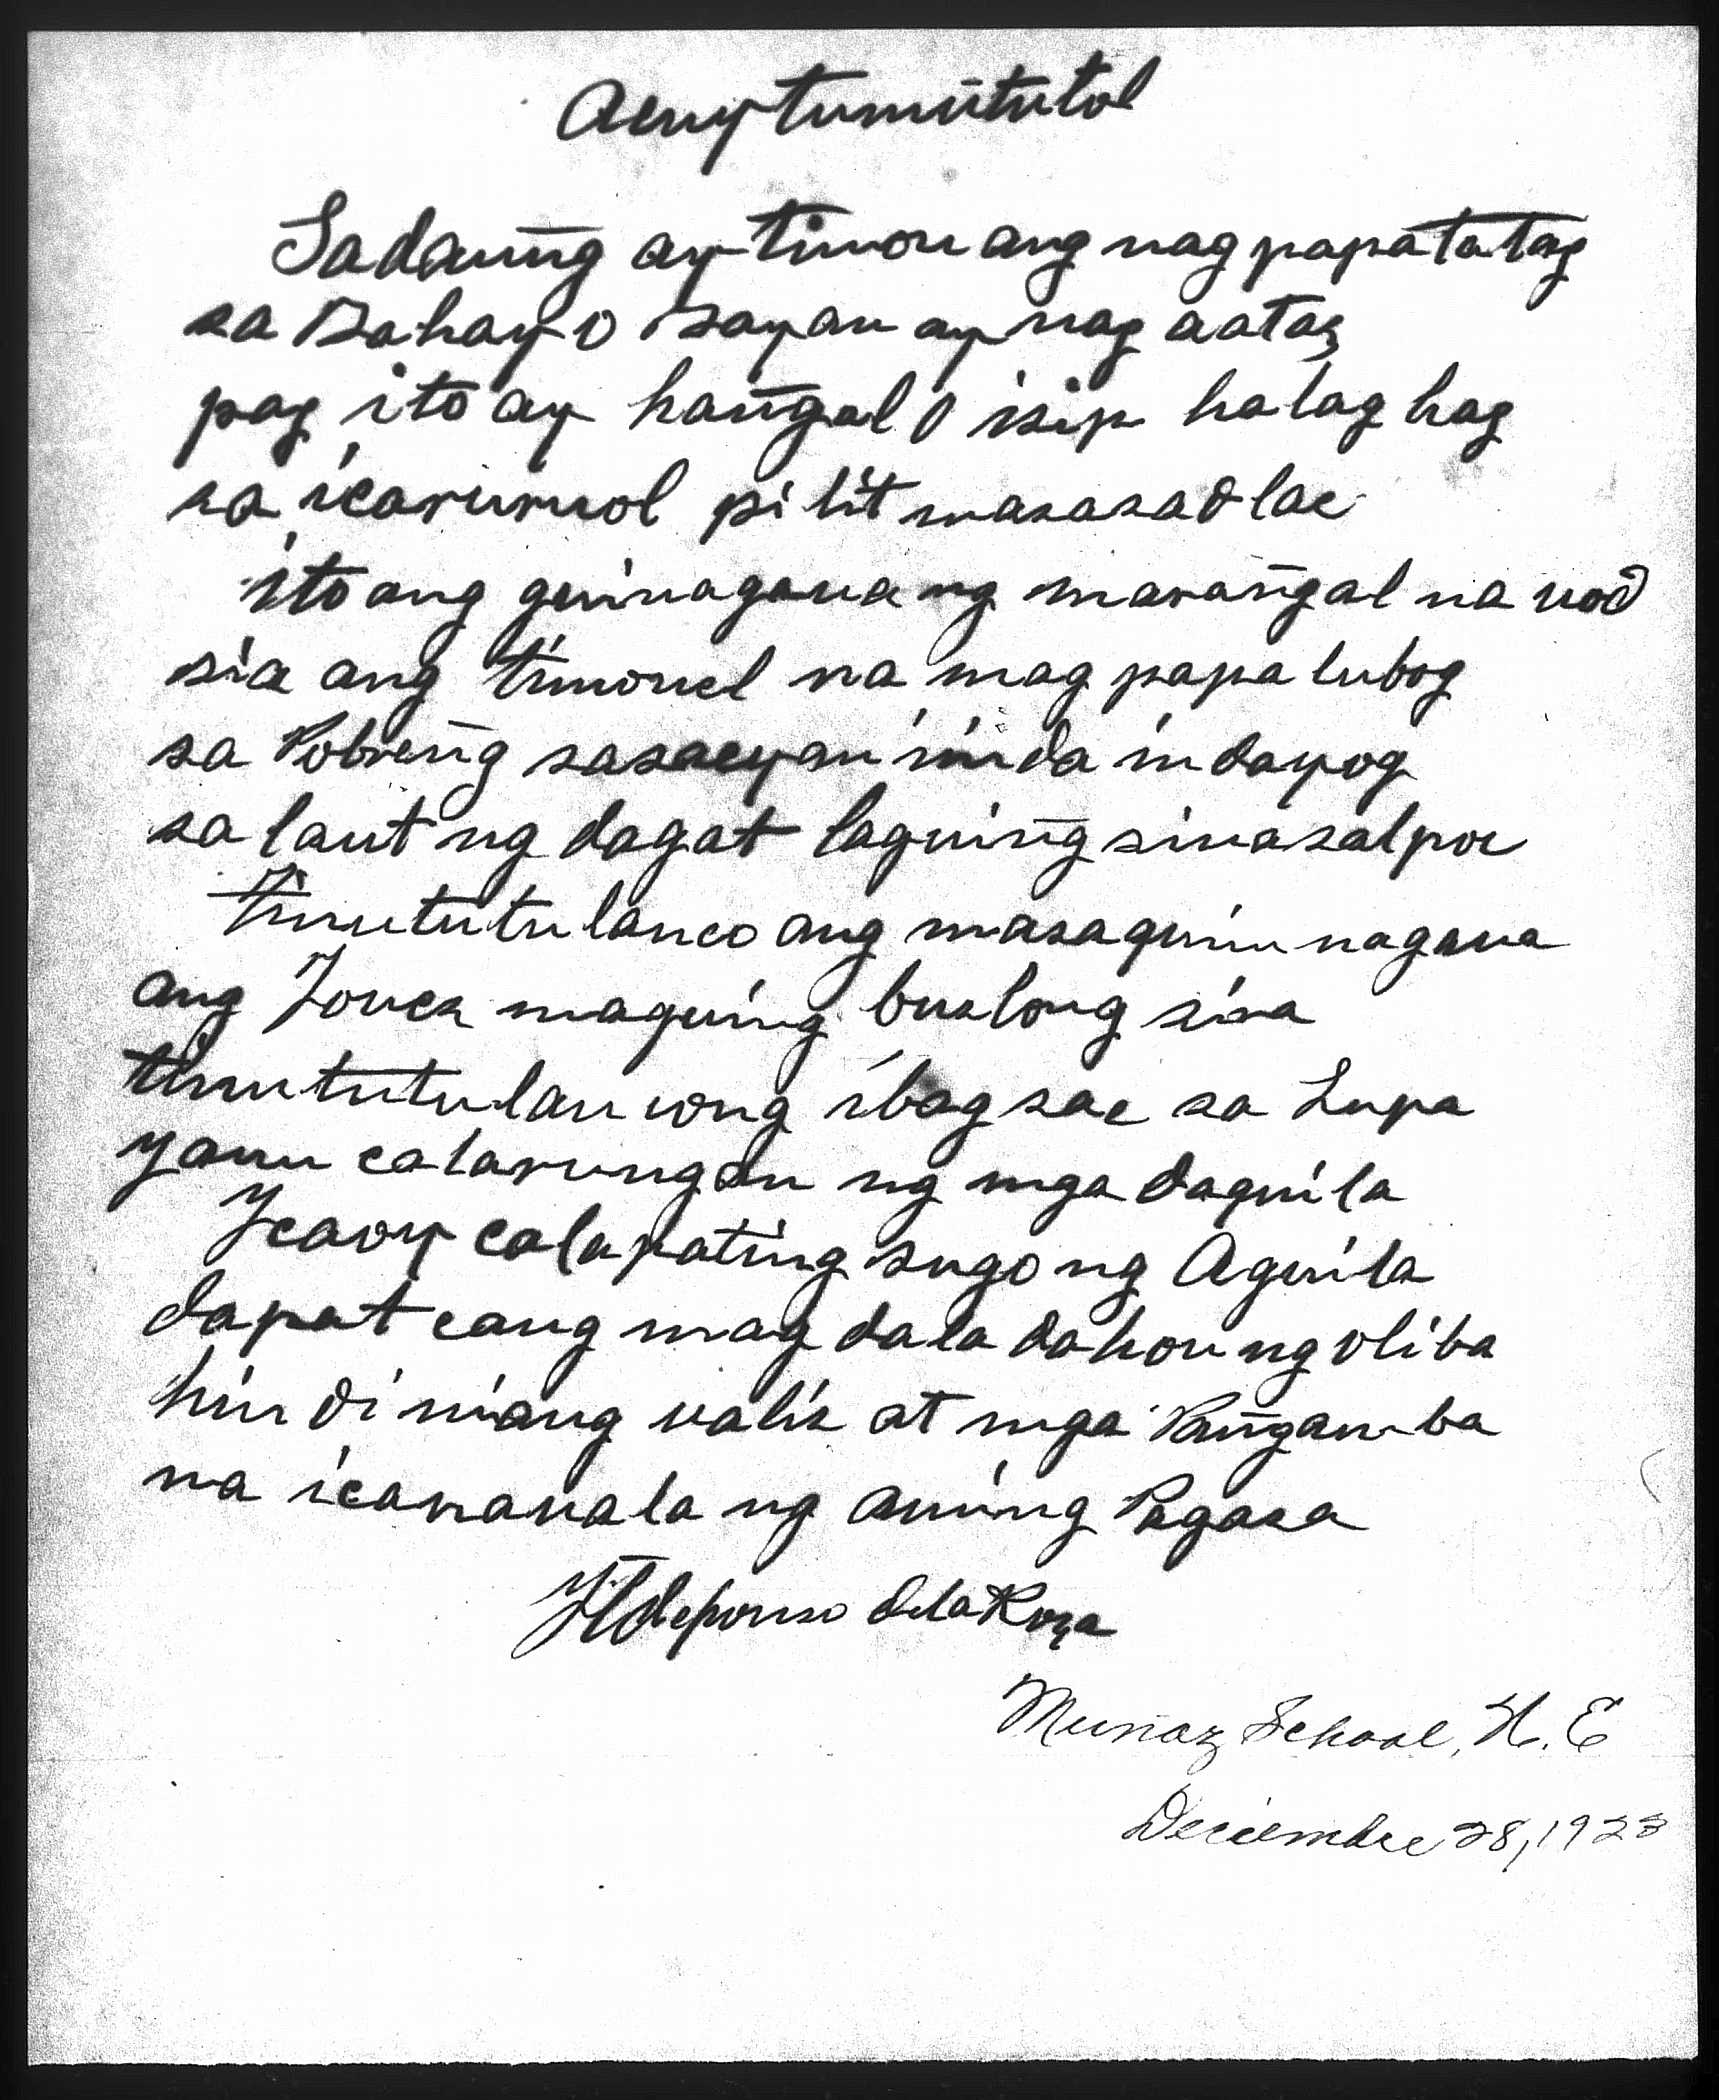 Acuy tumututol
Sadauñg ay timon ang nag papatatag
sa Bahay o Bayan ay nag aatas
pag ito ay hañgal o isip halaghag
sa icarurucol pilit masasadlac
ito ang guinagaua ng marañgal na vod
sia ang timonel na mag papalubog
sa Pobreñg sasacyan iniindaindayog
sa laut ng dagat laguiñg sinasalpoc
tinututulanco ang masaguinnagaua
ang Jones maguing bualong sira
tinututulan cong ibagsac sa Lupa
yaon catarungan ng mga daquila
Icaoy calapating sugo ng Aguila
dapat cang mag dala dahon ng oliba
hindi niang ualis at mga Pañgamba
na icararauala ng aming Pagasa
Yldefonso delaRosa
Munoz School, N. E
Deciembre 28, 1923